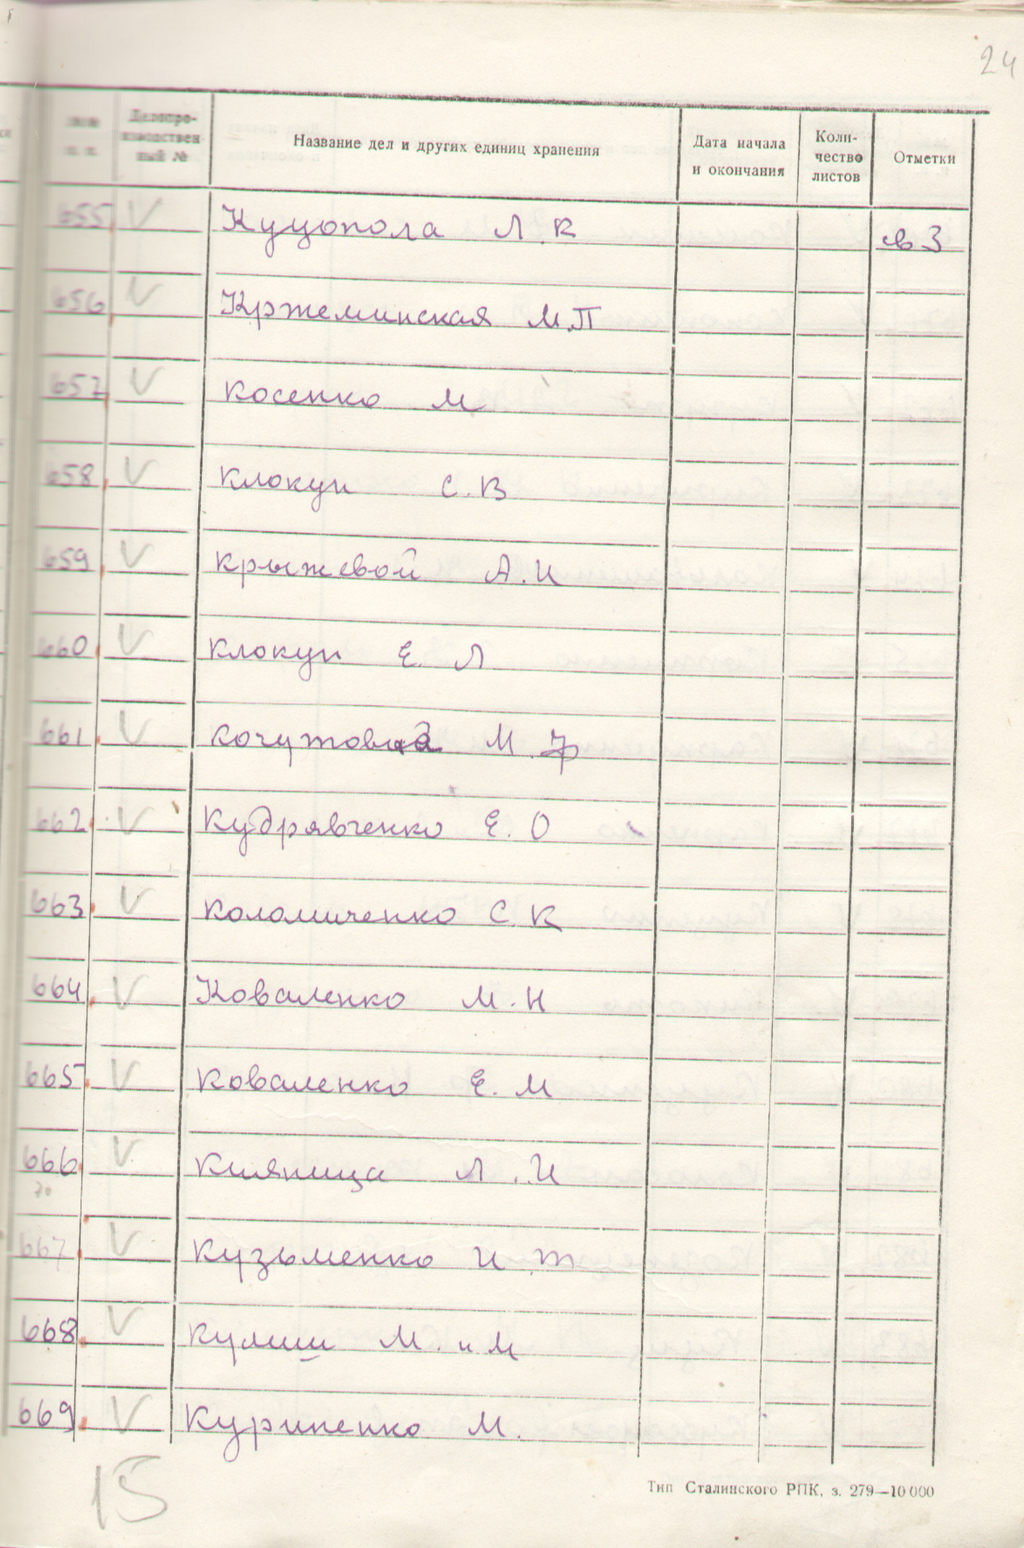 24
№№ п. п. Делопро-изводствен-ный № Название дел и других единиц хранения Дата начала и окончания Коли-чество листов Отметки
655 V Куцопола Л. К св 3
656 V Кржеминская М.П
657 V Косенко М
658 V Клокун С.В
659 V Крыжевой А.И
660 V Клокун Е. Л
661 V М. Ф
662 V Кудрявченко Е. О
663 V Коломиченко С. К
664 V Коваленко М. Н
665 V Коваленко Е. М
666 V Кияница Л. И
70
667 V Кузьменко И Т
668 V Кулиш М. и М
669 V Куриненко М.
15
Тип Сталинского РПК, з. 279—10 000